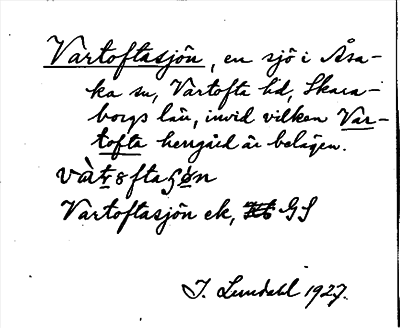 Vartoftasjön, en sjö i Åsa-
ka sn, Vartofta hd, Skara-
borgs län, invid vilken Var-
tofta herrgård är belägen.
Vartoftasjön ek, GS
I. Lundahl 1927.